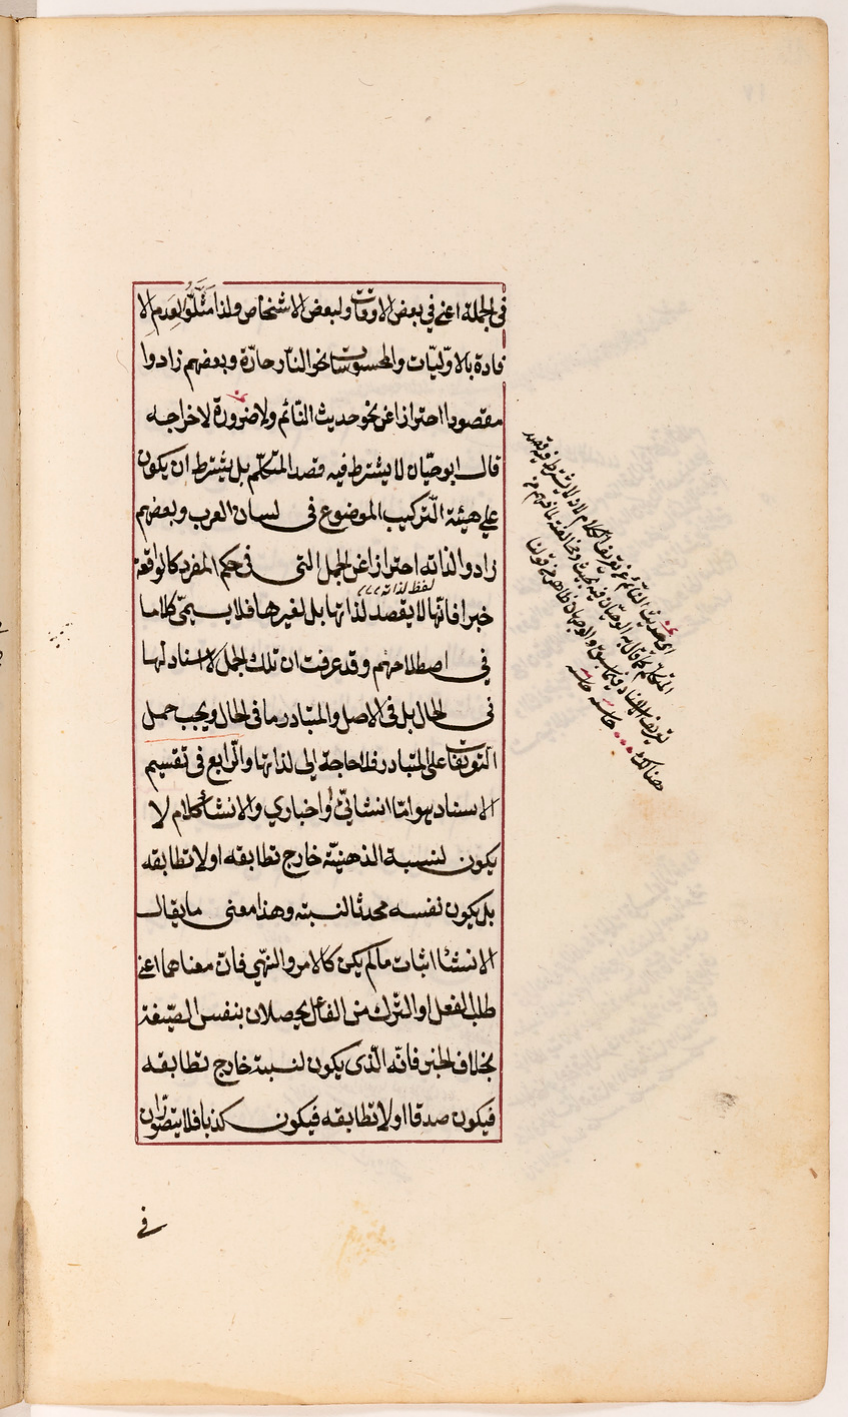 في الجملة اعني في بعض الاوقات ولبعض الاشخاص ولذا مثّلوا لعدم الا
فادة بالاوّليّات والمحسوسات نحو النّار حارّة وبعضهم زادوا
مقصودا احترازا عن نحو حديث النّائم ولا ضرورة لاخراجه
قال ابو حيّان لا يشترط فيه قصد المتكلّم بل يشترط ان يكون
علي هيئة التّركيب الموضوع في لسان العرب وبعضهم
زادوا لذاته احترازا عن الجمل التي في حكم المفرد كالواقعة
لفظ لذاته
خبرا فانّها لا يقصد لذاتها بل لغيرها فلا يسمّى كلاما
في اصطلاحهم وقد عرفت ان تلك الجمل لا اسناد لها
في الحال بل في الاصل والمتبادر ما في الحال ويجب حمل
التّعريفات على المتبادر فلا حاجة الى لذاتها والرّابع في تقسيم
الاسناد هو امّا انشائيّ او اخباري والانشاء كلام لا
يكون لنسبة الذهنيّة خارج تطابقه او لا تطابقه
بل يكون نفسه محدثا لنسبته وهذا معنى ما يقال
الانشاء اثبات ما لم يكن كالامر والنّهي فانّ معناهما اعني
طلب الفعل او التّرك من الفاعل يحصلان بنفس الصّيغة
بخلاف الخبر فانّه الّذي يكون لنسبته خارج تطابقه
فيكون صدقا او لا تطابقه فيكون كذبا فلا يتصوّران
في
اي حديث النّائم عن تعريف الكلام لانه لا يشترط فيه قصد
المتكلّم كما قال به ابو حيّان